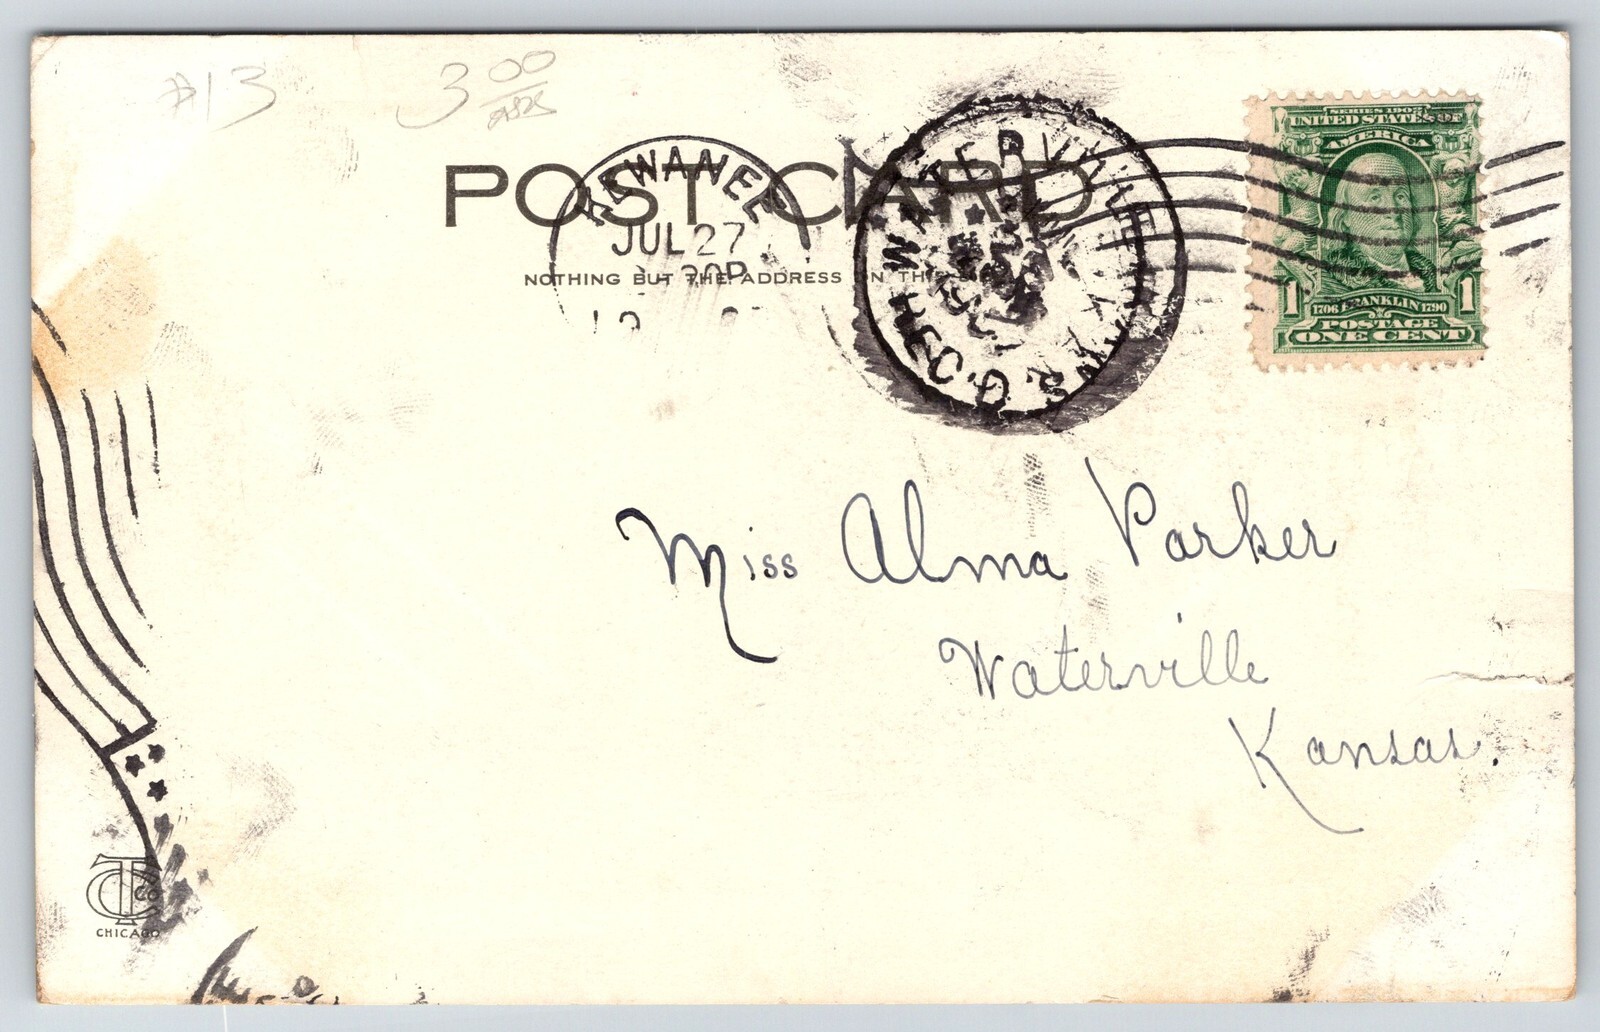 #13 3 00
POST CARD
KEWANEE
JUL 27
NOTHING BUT THE ADDRESS ON THIS
WATERVILLE KANS.
REC'D.
SERIES 1902
UNITED STATES OF
AMERICA
1 1706 FRANKLIN 1790 1
POSTAGE
ONE CENT
Miss Alma Parker
Waterville
Kansas.
CT Co
CHICAGO